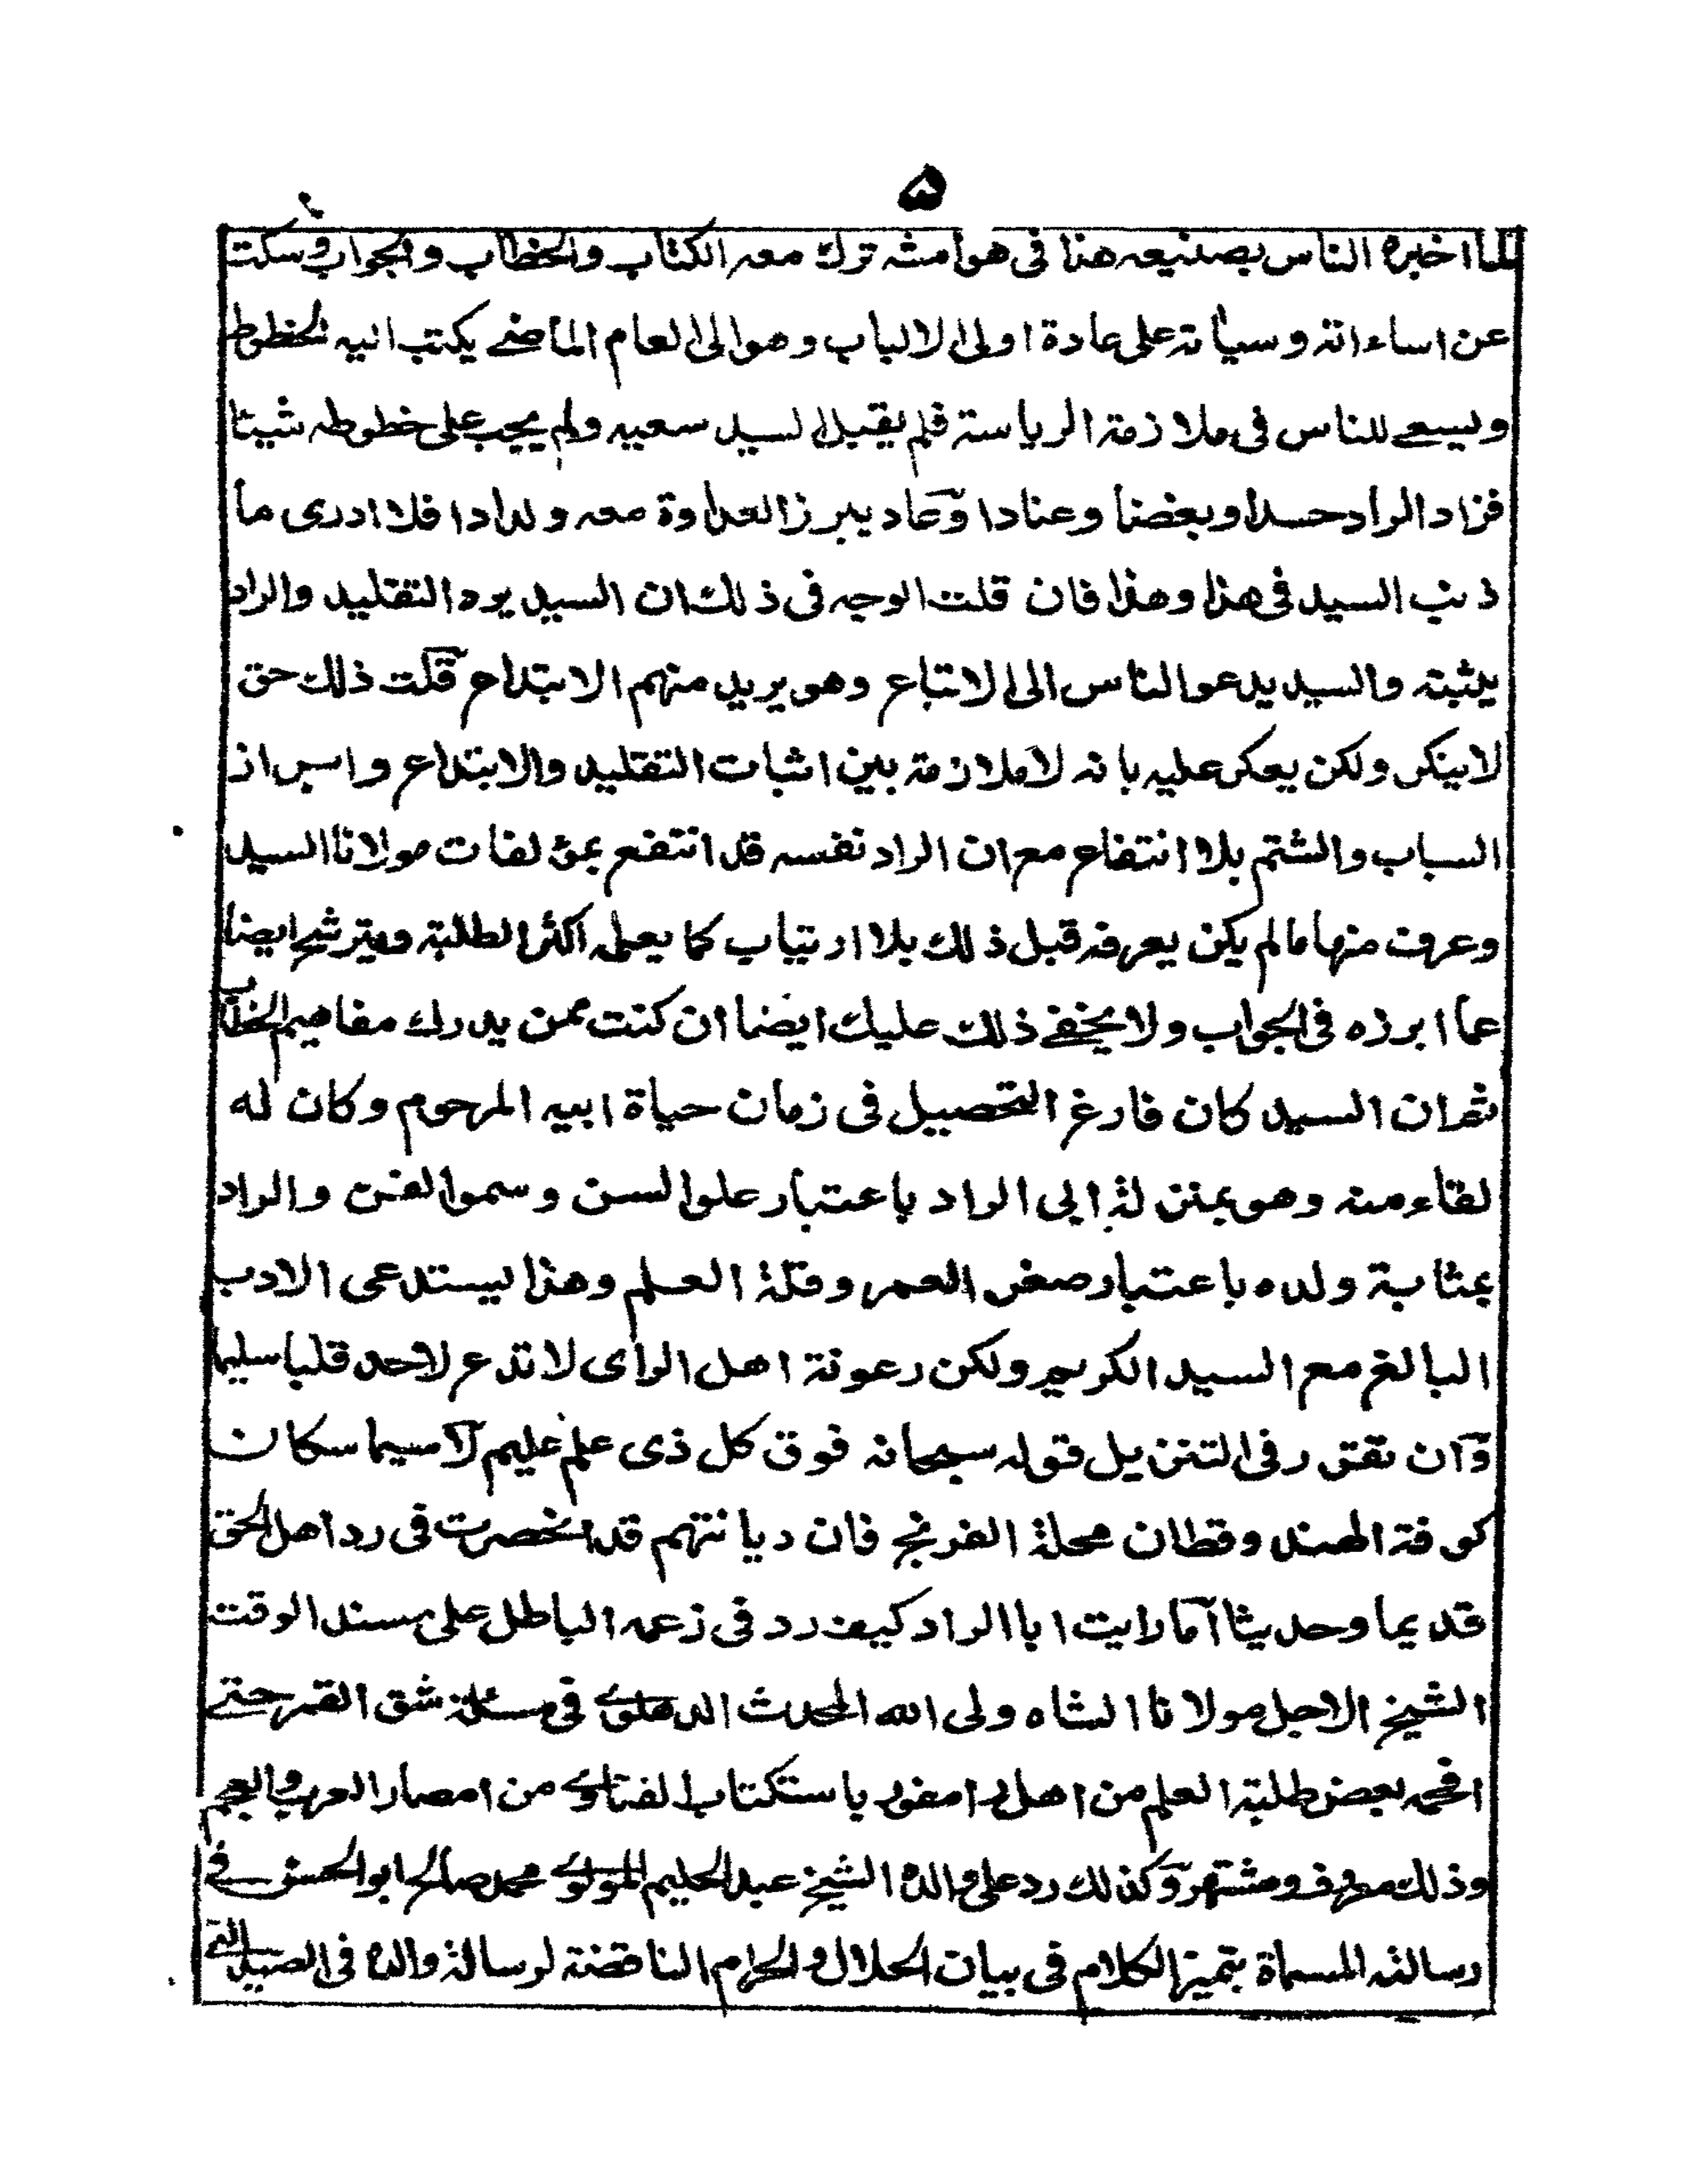 ۵
لما اخبره الناس بصنيعه هذا فى هوامشه ترك معه الكتاب والخطاب والجواب وسكت
عن اساءاته وسيأته على عادة اولى الالباب وهو الى العام الماضے يكتب اليه الخطوط
ويسعے للناس فى ملازمة الرياسة فلم يقبل السيد سعيه ولم يجب على خطوطه شيئا
فزاد الراد حسدا وبغضا وعنادا وعاد يبرز العداوة معه ولدادا فلا ادرى ما
ذنب السيد فى هذا وهذا فان قلت الوجه فى ذلك ان السيد يرد التقليد والراد
يثبته والسيد يدعو الناس الى الاتباع وهو يريد منهم الابتداع قلت ذلك حق
لا ينكر ولكن يعكر عليه بانه لا ملازمة بين اثبات التقليد والابتداع وابراز
السباب والشتم بلا انتفاع مع ان الراد نفسه قد انتفع بمؤلفات مولانا السيد
وعرف منها ما لم يكن يعرفه قبل ذلك بلا ارتياب كما يعلمه اكثر الطلبة ويترشح ايضا
عما ابرزه فى الجواب ولا يخفے ذلك عليك ايضا ان كنت ممن يدرك مفاهيم الخطاب
ثم ان السيد كان فارغ التحصيل فى زمان حياة ابيه المرحوم وكان له
لقاء منه وهو بمنزلة ابى الراد باعتبار علو السن وسمو الفن والراد
بمثابة ولده باعتبار صغر العمر وقلة العلم وهذا يستدعى الادب
البالغ مع السيد الكريم ولكن رعونة اهل الراى لا تدع لاحد قلبا سليما
وان تقرر فى التنزيل قوله سبحانه فوق كل ذى علم عليم لا سيما سكان
كوفة الهند وقطان محلة الفرنج فان ديانتهم قد انحصرت فى رد اهل الحق
قديما وحديثا اما رايت ابا الراد كيف رد فى زعمه الباطل على مسند الوقت
الشيخ الاجل مولانا الشاه ولى الله المحدث الدهلوے فى مسئلة شق القمر حتے
افحمه بعض طلبة العلم من اهل رامفور باستكتاب الفتاوے من امصار العرب والعجم
وذلك معروف ومشتهر وكذلك رد على والده الشيخ عبد الحليم المولوے محمد صالح ابو الحسن فے
رسالته المسماة بتميز الكلام فى بيان الحلال والحرام الناقضة لرسالة والده فى الصيد التے